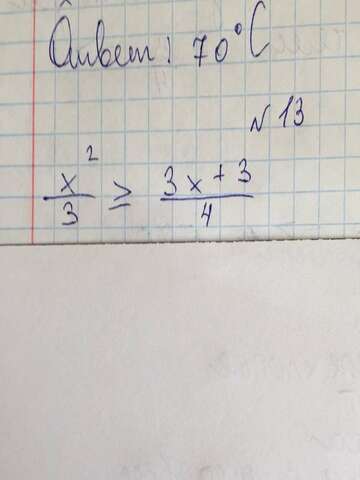 Ответ: 70°C
N 13
x²/3 ≥ (3x + 3)/4